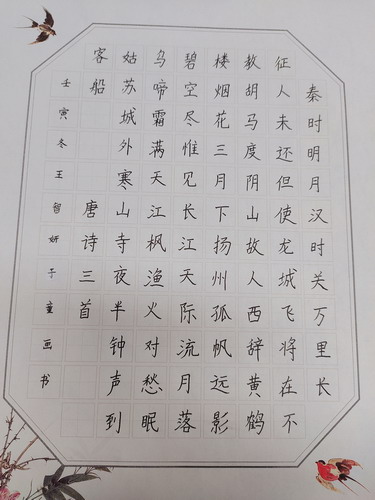 秦时明月汉时关万里长
征人未还但使龙城飞将在不
教胡马度阴山故人西辞黄鹤
楼烟花三月下扬州孤帆远影
碧空尽惟见长江天际流月落
乌啼霜满天江枫渔火对愁眠
姑苏城外寒山寺夜半钟声到
客船 唐诗三首
壬寅冬王智妍于童画书